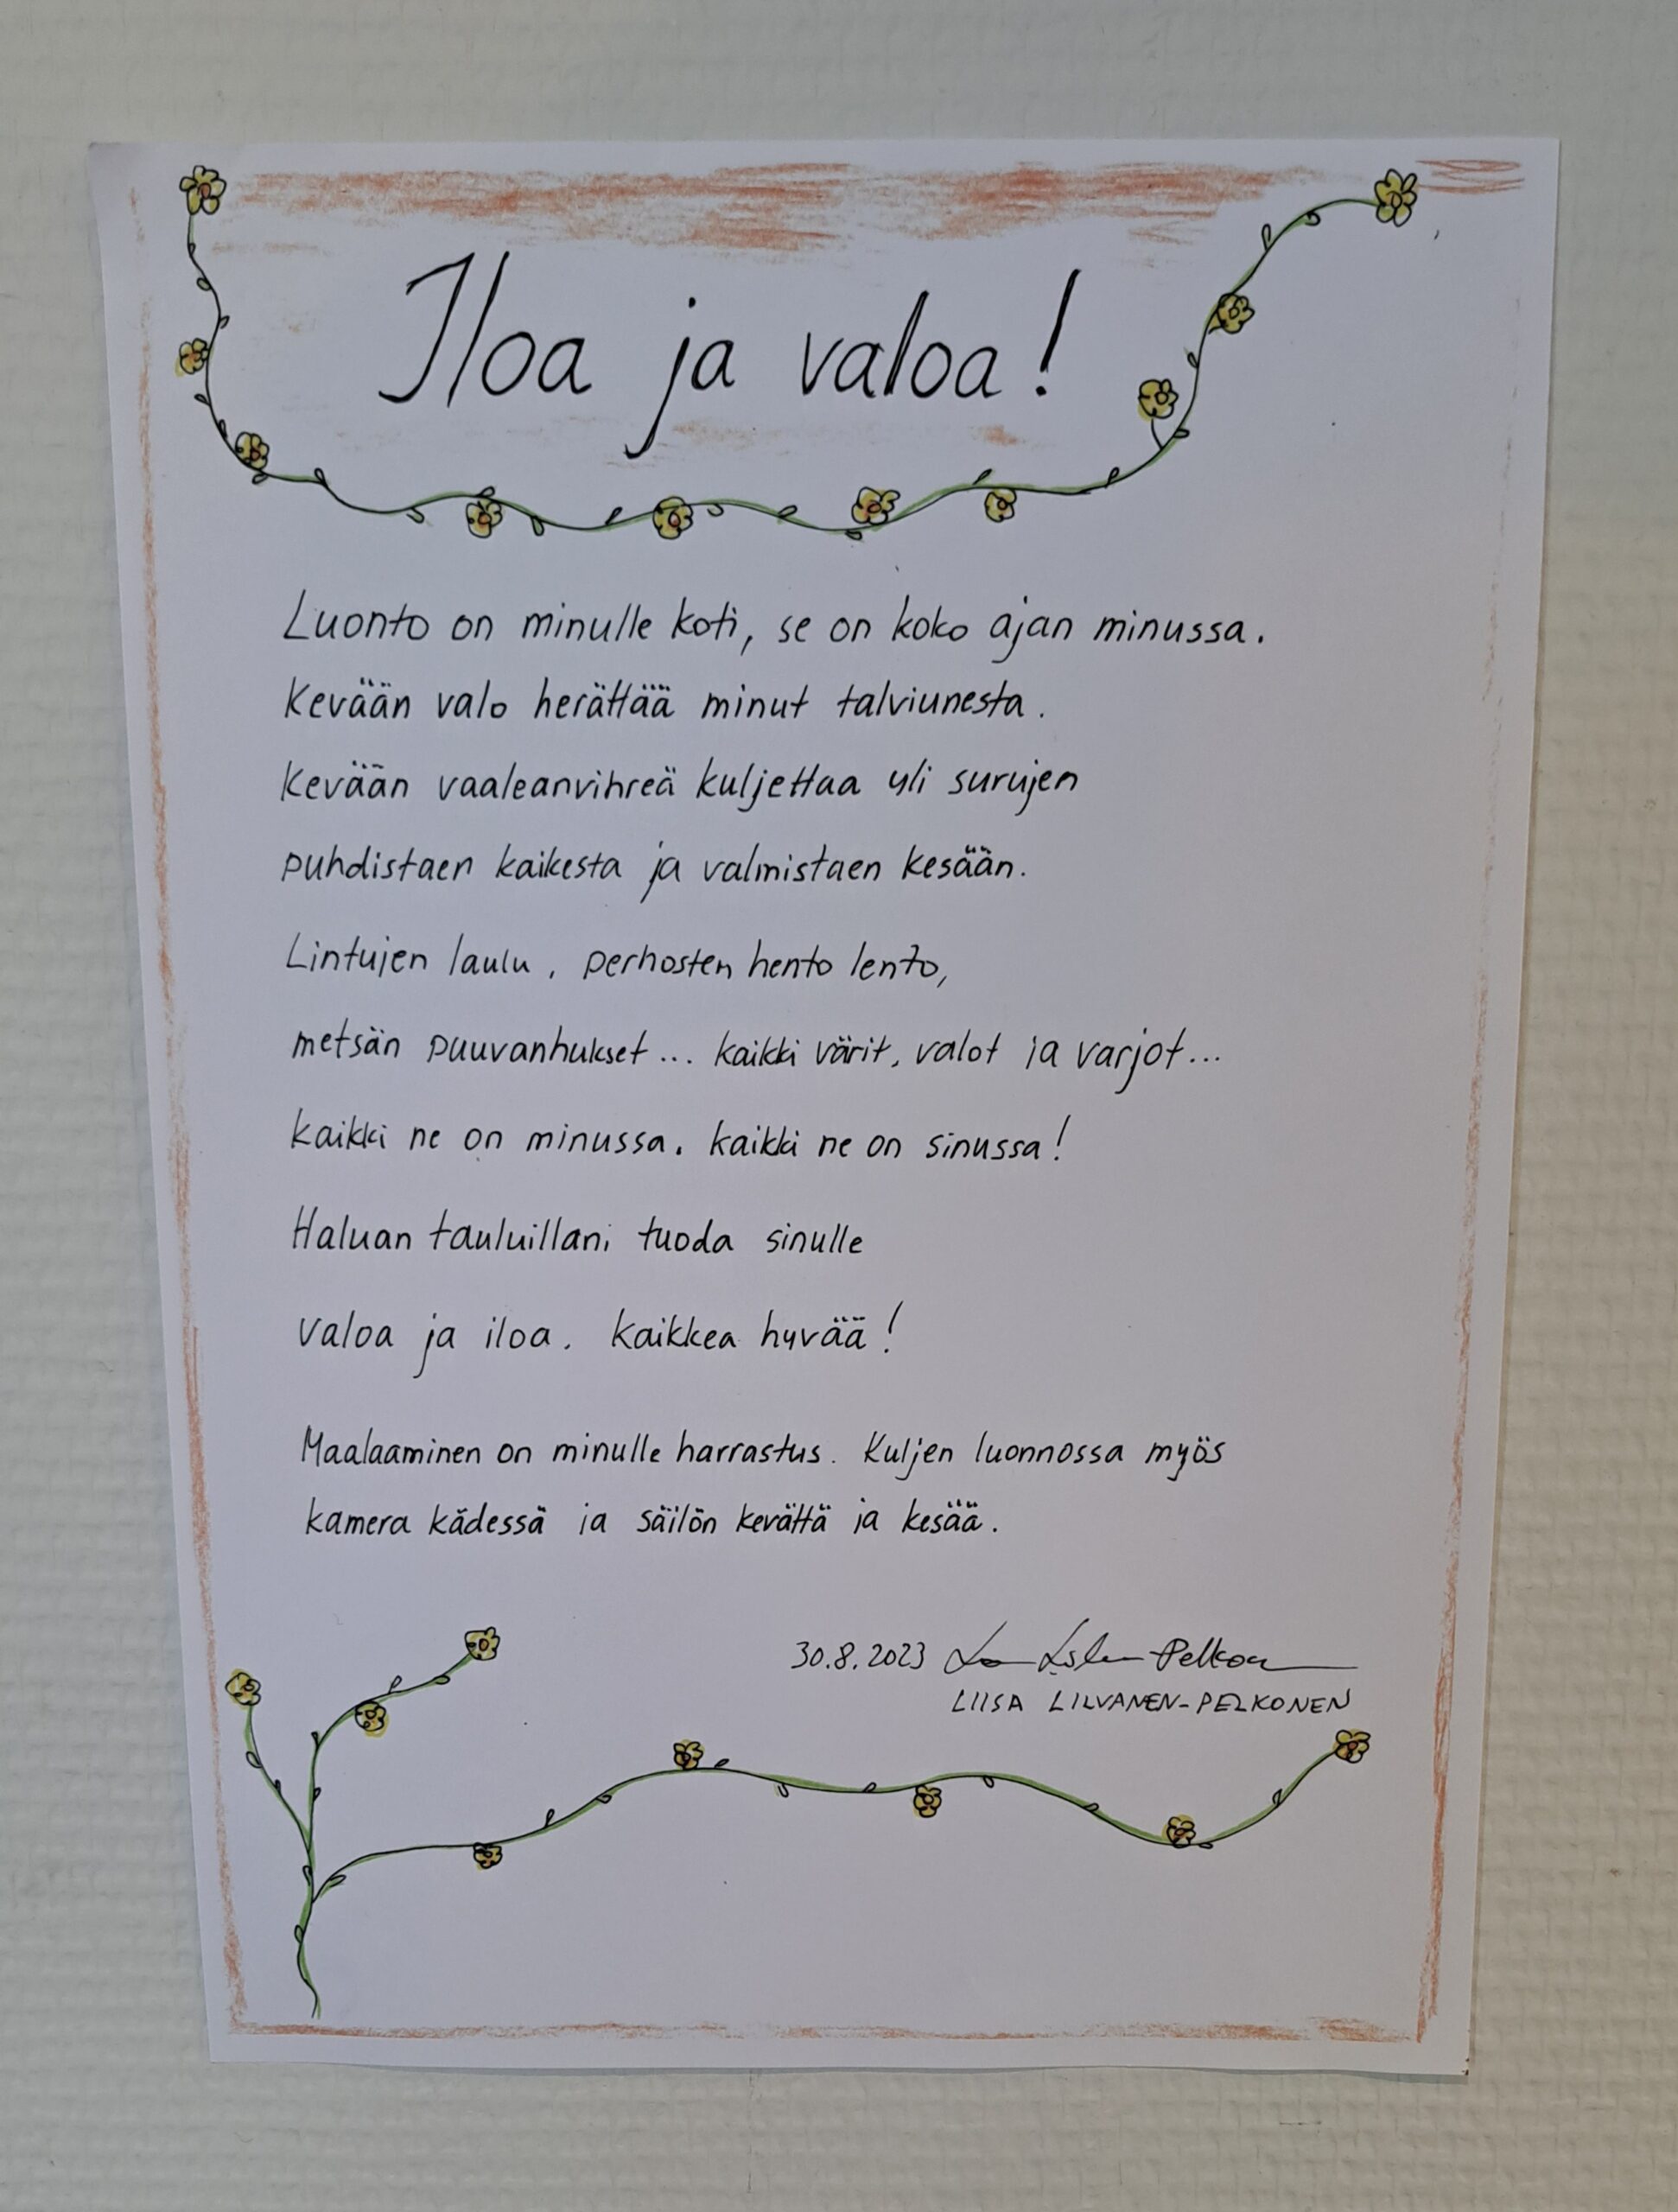 Iloa ja valoa!
Luonto on minulle koti, se on koko ajan minussa.
Kevään valo herättää minut talviunesta.
Kevään vaaleanvihreä kuljettaa yli surujen
puhdistaen kaikesta ja valmistaen kesään.
Lintujen laulu, perhosten hento lento,
metsän puuvanhukset... kaikki värit, valot ja varjot...
kaikki ne on minussa. kaikki ne on sinussa!
Haluan tauluillani tuoda sinulle
valoa ja iloa. Kaikkea hyvää!
Maalaaminen on minulle harrastus. Kuljen luonnossa myös
kamera kädessä ja säilön kevättä ja kesää.
30.8.2023
LIISA LILVANEN-PELKONEN